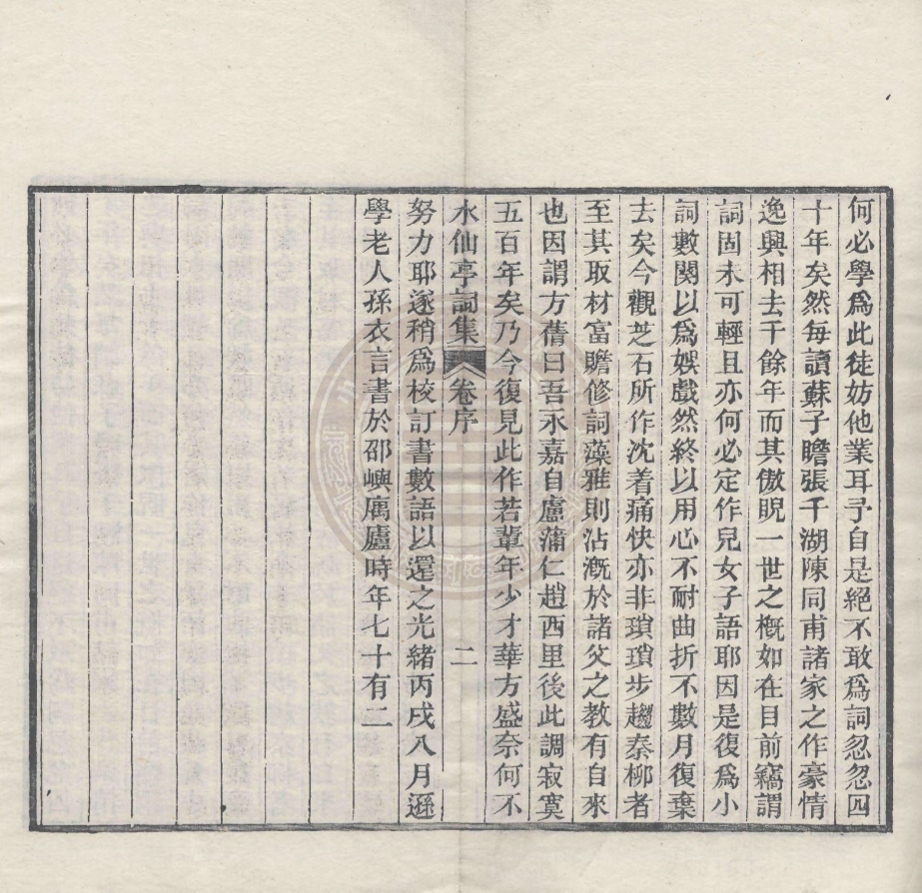 何必學爲此徒妨他業耳予自是絕不敢爲詞忽忽四
十年矣然每讀蘇子瞻張于湖陳同甫諸家之作豪情
逸興相去千餘年而其傲睨一世之槪如在目前竊謂
詞固未可輕且亦何必定作兒女子語耶因是復爲小
詞數闋以爲娛戲然終以用心不耐曲折不數月復棄
去矣今觀芝石所作沈着痛快亦非瑣瑣步趨秦柳者
至其取材富贍修詞藻雅則沾漑於諸父之教有自來
也因謂方蒨曰吾永嘉自盧蒲仁趙西里後此調寂寞
五百年矣乃今復見此作若輩年少才華方盛奈何不
水仙亭詞集 卷序 二
努力耶遂稍爲校訂書數語以還之光緒丙戌八月遜
學老人孫衣言書於邵嶼廎廬時年七十有二